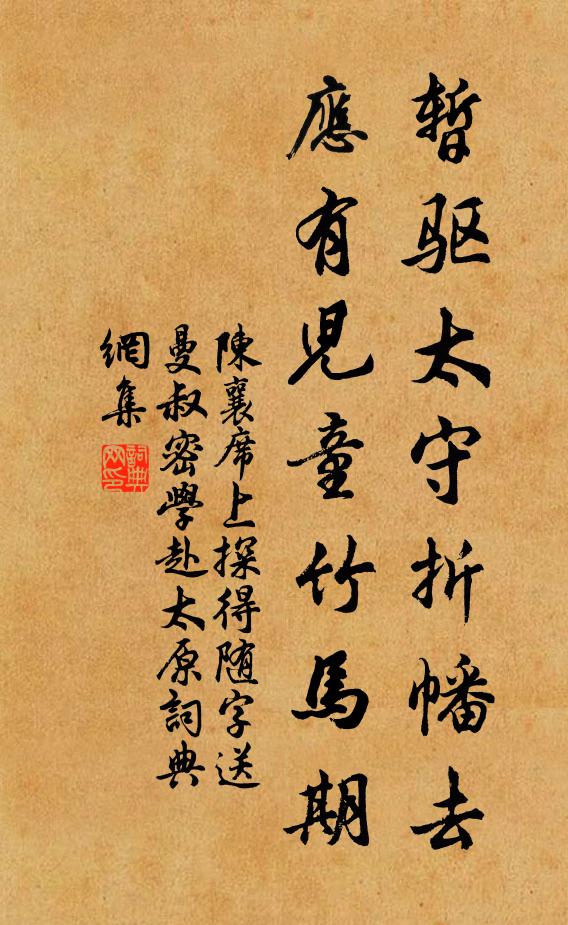 暫驱太守折幡去
應有児童竹馬期
陳襄席上探得随字送
曼叔密學赴太原詞典
網集
詞典
网印